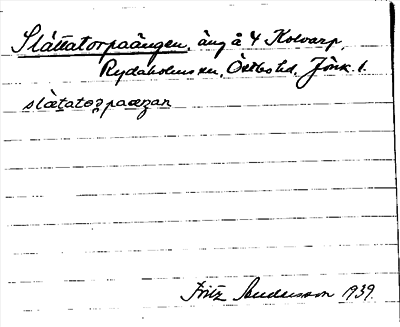 Slåttatorpaängen, äng å 4 Kolvarp,
Rydaholms sn, Östbo hd, Jönk. l.
slåtatorpaæŋan
Fritz Andersson 1939.